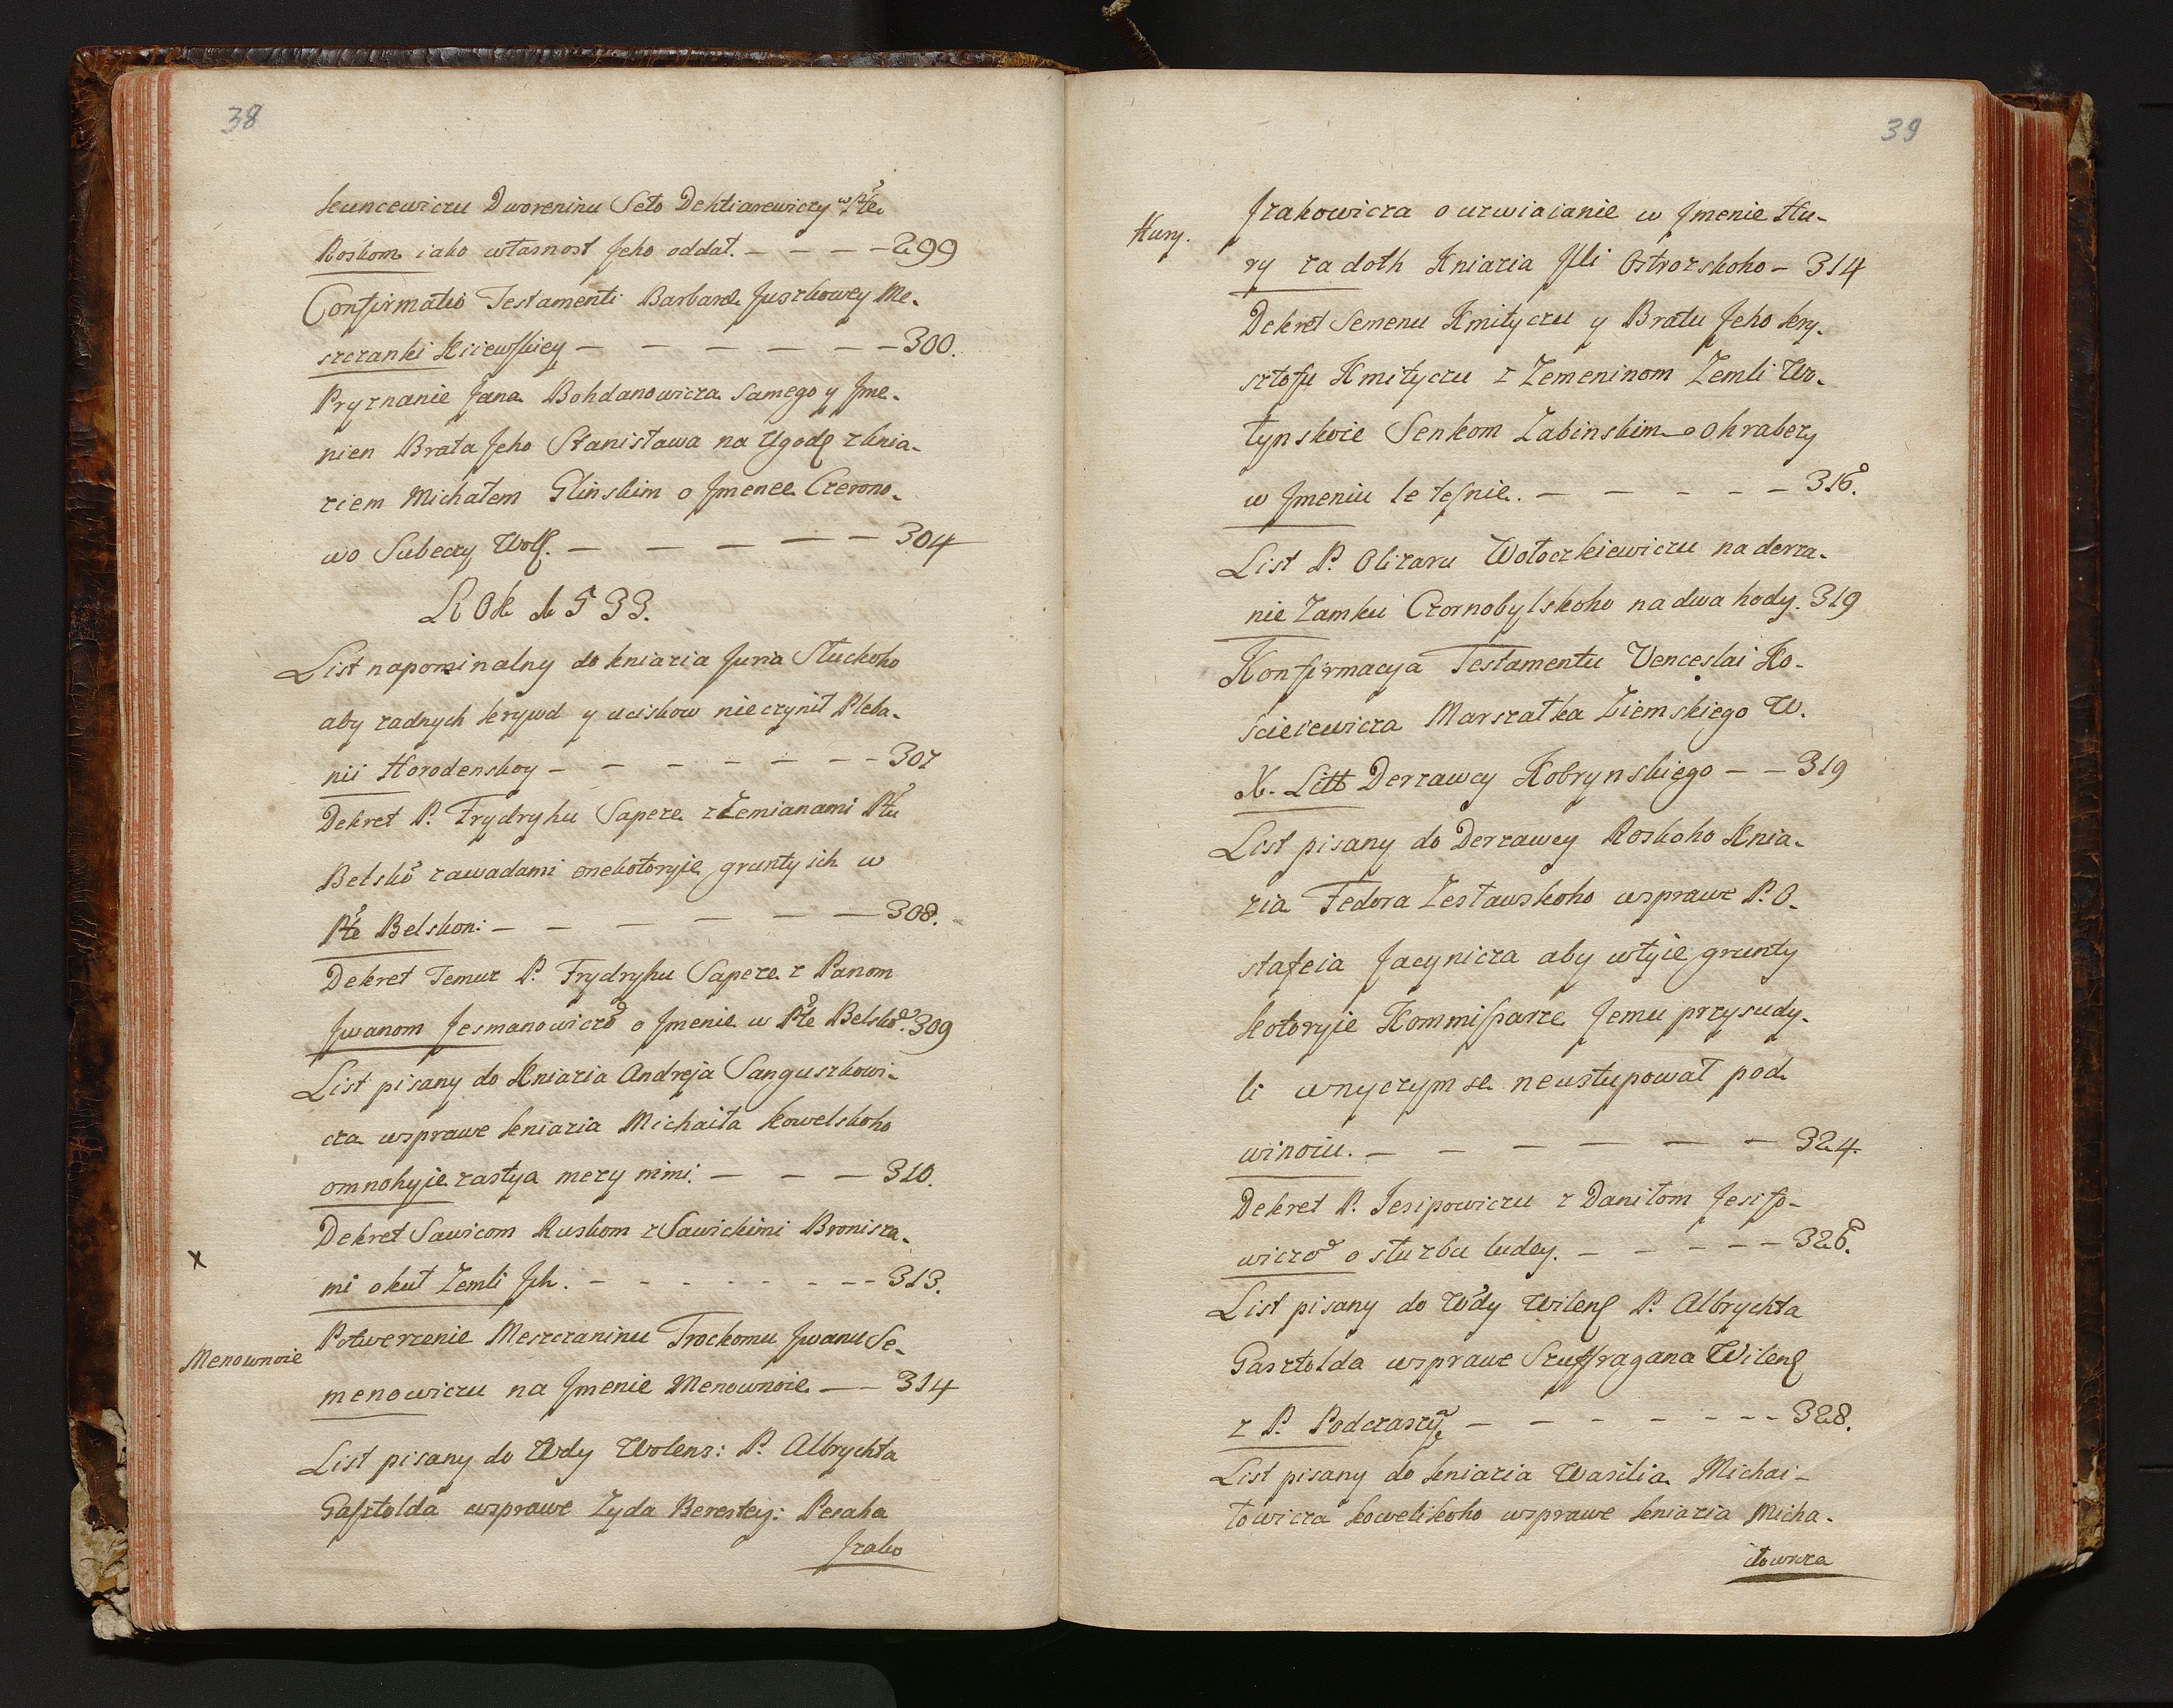 38
kuncewiczu Dworeninu Seło Dektiarewiczy w Pte
Roskom iako własnost Jeho oddał. — — — — 299
Confirmatio Testamenti Barbaræ Juszkowey Me-
szczanki Kiiewskiey — — — — — — 300.
Pryznanie Jana Bohdanowicza Samego y Jme-
niem Brata Jeho Stanisława na Ugodę z knia-
ziem Michałem Glinskim o Jmenee Czerono-
wo Subeczy Woł. — — — — — 304
ROk 1533.
List napominalny do kniazia Juria Słuckoho
aby zadnych krywd y uciskow nieczynił Pleba-
nii Horodenskoy — — — — — — — 307
Dekret P. Frydryhu Sapeze z Zemianami Ptu
Belskō zawadami onekotoryie grunty ich w
Pte Belskom: — — — — — — 308.
Dekret Temuz P. Frydryhu Sapeze z Panom
Jwanom Jesmanowiczō o Jmenie w Pte Belskō. 309
List pisany do Kniazia Andreja Sanguszkowi-
cza wsprawe kniazia Michaiła kowelskoho
omnohyie zastya mezy nimi. — — — 310.
Dekret Sawicom Ruskom z Sawickimi Bronisza-
x
mi okut Zemli Jch. — — — — — — — — 313.
Potwerzenie Meszczaninu Trockomu Jwanu Se-
Menownoie
menowiczu na Jmenie Menownoie — — 314
List pisany do Wdy Wolens: P. Albrychta
Gasztolda wsprawe Zyda Beresteys: Pesaha
Jzako
39
Jzakowicza o uzwiaianie w Jmenie Hu-
Hury.
ry za dolh Kniazia Jlli Ostrozskoho — 314
Dekret Semenu Kmityczu y Bratu Jeho kry-
sztofu Kmityczu z Zemeninom Zemli Wo-
łynskoie Senkom Zabinskim o hrabezy
w Jmeniu letesnie. — — — — — 316.
List P. Olizaru Wołoczkiewiczu na derza-
nie Zamku Czornobylskoho na dwa hody. 319
Konfirmacya Testamentu Venceslai Ko-
scieiewicza Marszałka Ziemskiego W.
X. Litt Derzawcy Kobrynskiego — — 319
List pisany do Derzawcy Roskoho Knia-
zia Fedora Zesławskoho wsprawe P. O-
stafeia Jacynicza aby wtyie grunty
kotoryie Kommissarze Jemu przysudy-
li wnyczym se neustupował pod
winoiu. — — — — — — 324.
Dekret P. Jesipowiczu z Daniłom Jesipo-
wiczō o służbu ludey. — — — — — 326.
List pisany do Wdy Wilenſ P. Albrychta
Gasztolda wsprawe Szuffragana Wilenſ
z P. Podczaszy — — — — — — — 328.
List pisany do kniazia Wasilia Michai-
łowicza kowelskoho wsprawe kniazia Micha-
iłowicza